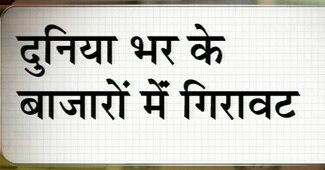 दुनिया भर के
बाजारों में गिरावट